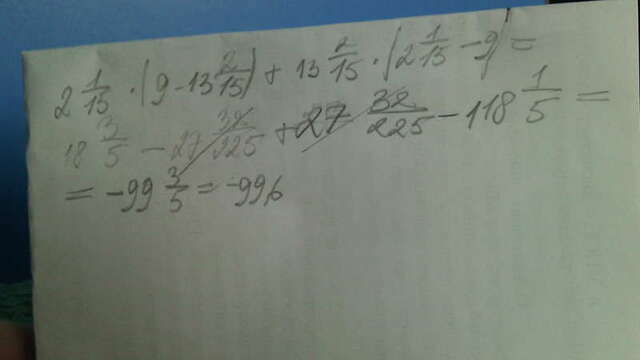 2 1/15 · (9 - 13 2/15) + 13 2/15 · (2 1/15 - 9) =
18 3/5 - 27 32/225 + 27 32/225 - 118 1/5 =
= -99 3/5 = -99,6